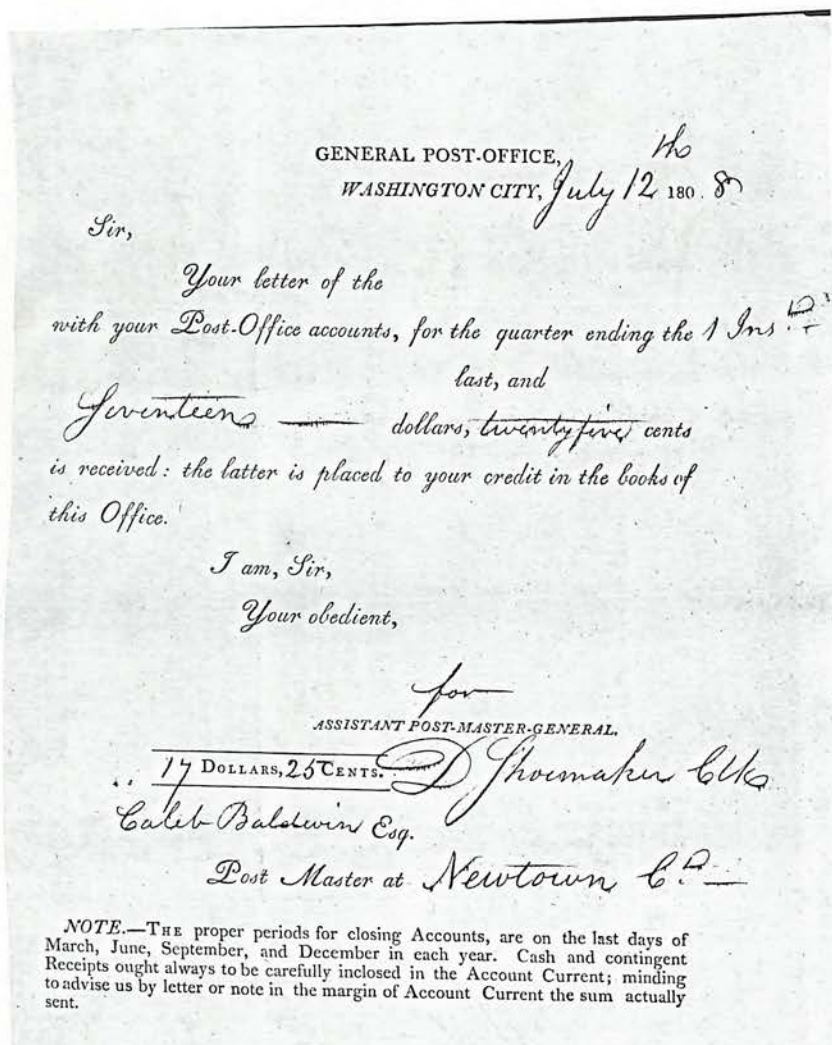 GENERAL POST-OFFICE,
WASHINGTON CITY, July 12th 180.8
Sir,
Your letter of the
with your Post-Office accounts, for the quarter ending the 1 Inst
last, and
Seventeen dollars, twentyfive cents
is received: the latter is placed to your credit in the books of
this Office.
I am, Sir,
Your obedient,
for
ASSISTANT POST-MASTER-GENERAL.
17 DOLLARS, 25 CENTS. D Shoemaker Clk
Caleb Baldwin Esq.
Post Master at Newtown
NOTE.—THE proper periods for closing Accounts, are on the last days of
March, June, September, and December in each year. Cash and contingent
Receipts ought always to be carefully inclosed in the Account Current; minding
to advise us by letter or note in the margin of Account Current the sum actually
sent.